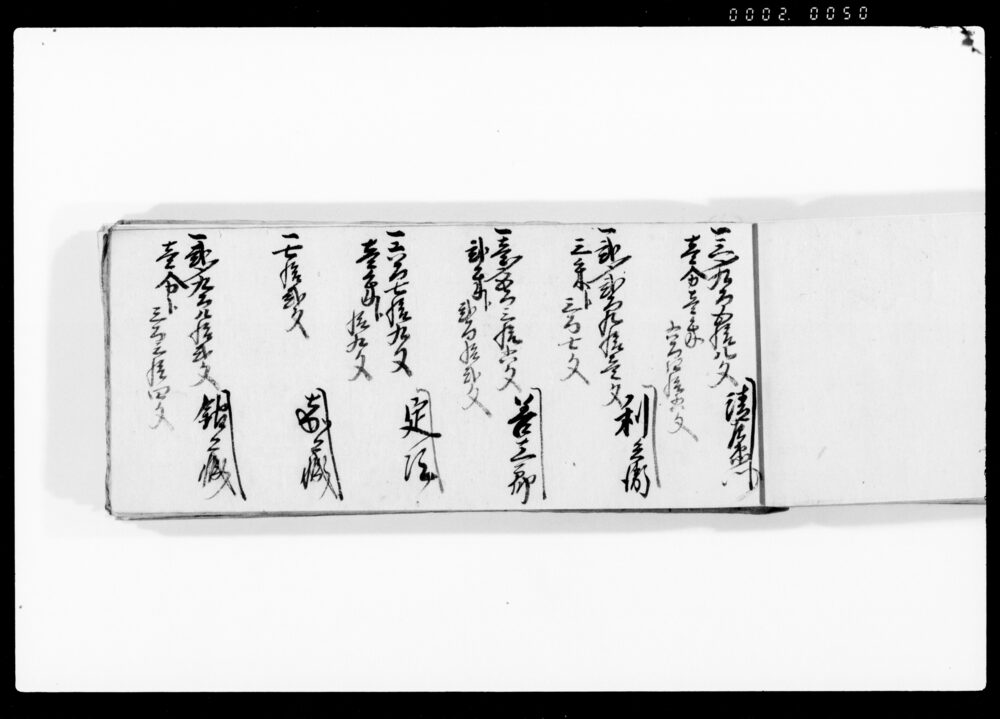 0002. 0050
一三〆九百五拾八文 清左衛門
壱分壱朱 六百四拾八文
一弐〆弐百九拾壱文 利兵衛
三朱ト 三百七文
一壱〆五百三拾六文 善三郎
弐朱ト 弐百拾弐文
一六百七拾九文 定
壱朱ト 拾九文
一七拾弐文 蔵
一弐〆九百八拾弐文 蔵
壱分ト 三百三拾四文